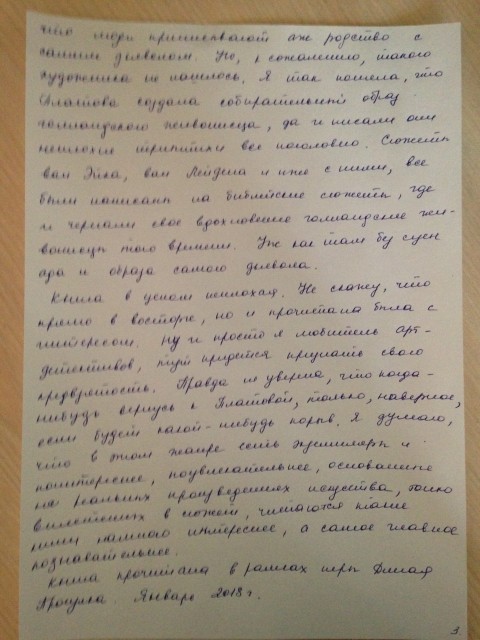 что люди приписывают аже родство с
самим дьяволом. Но, к сожалению, такого
художника не нашлось. Я так поняла, что
Платова создала собирательный образ
голландского живописца, да и писали они
неплохие триптихи все поголовно. Сюжеты
ван Эйка, ван Лейдена и иже с ними, все
были написаны на библейские сюжеты, где
и черпали свое вдохновение голландские жи-
вописцы того времени. Уж как там без сцен
ада и образа самого дьявола.
Книга в целом неплохая. Не скажу, что
прямо в восторге, но и прочитана была с
интересом. Ну и просто я любитель арт-
детективов, тут придется признать свою
предвзятость. Правда не уверена, что когда-
нибудь вернусь к Платовой, только, наверное,
если будет какой-нибудь порыв. Я думаю,
что в этом жанре есть экземпляры и
поинтереснее, поувлекательнее, основанные
на реальных произведениях искусства,
вплетенных в сюжет, читаются такие
книги намного интереснее, а самое главное
познавательнее.
Книга прочитана в рамках игры Дикая
Прогулка. Январь 2018 г.
3